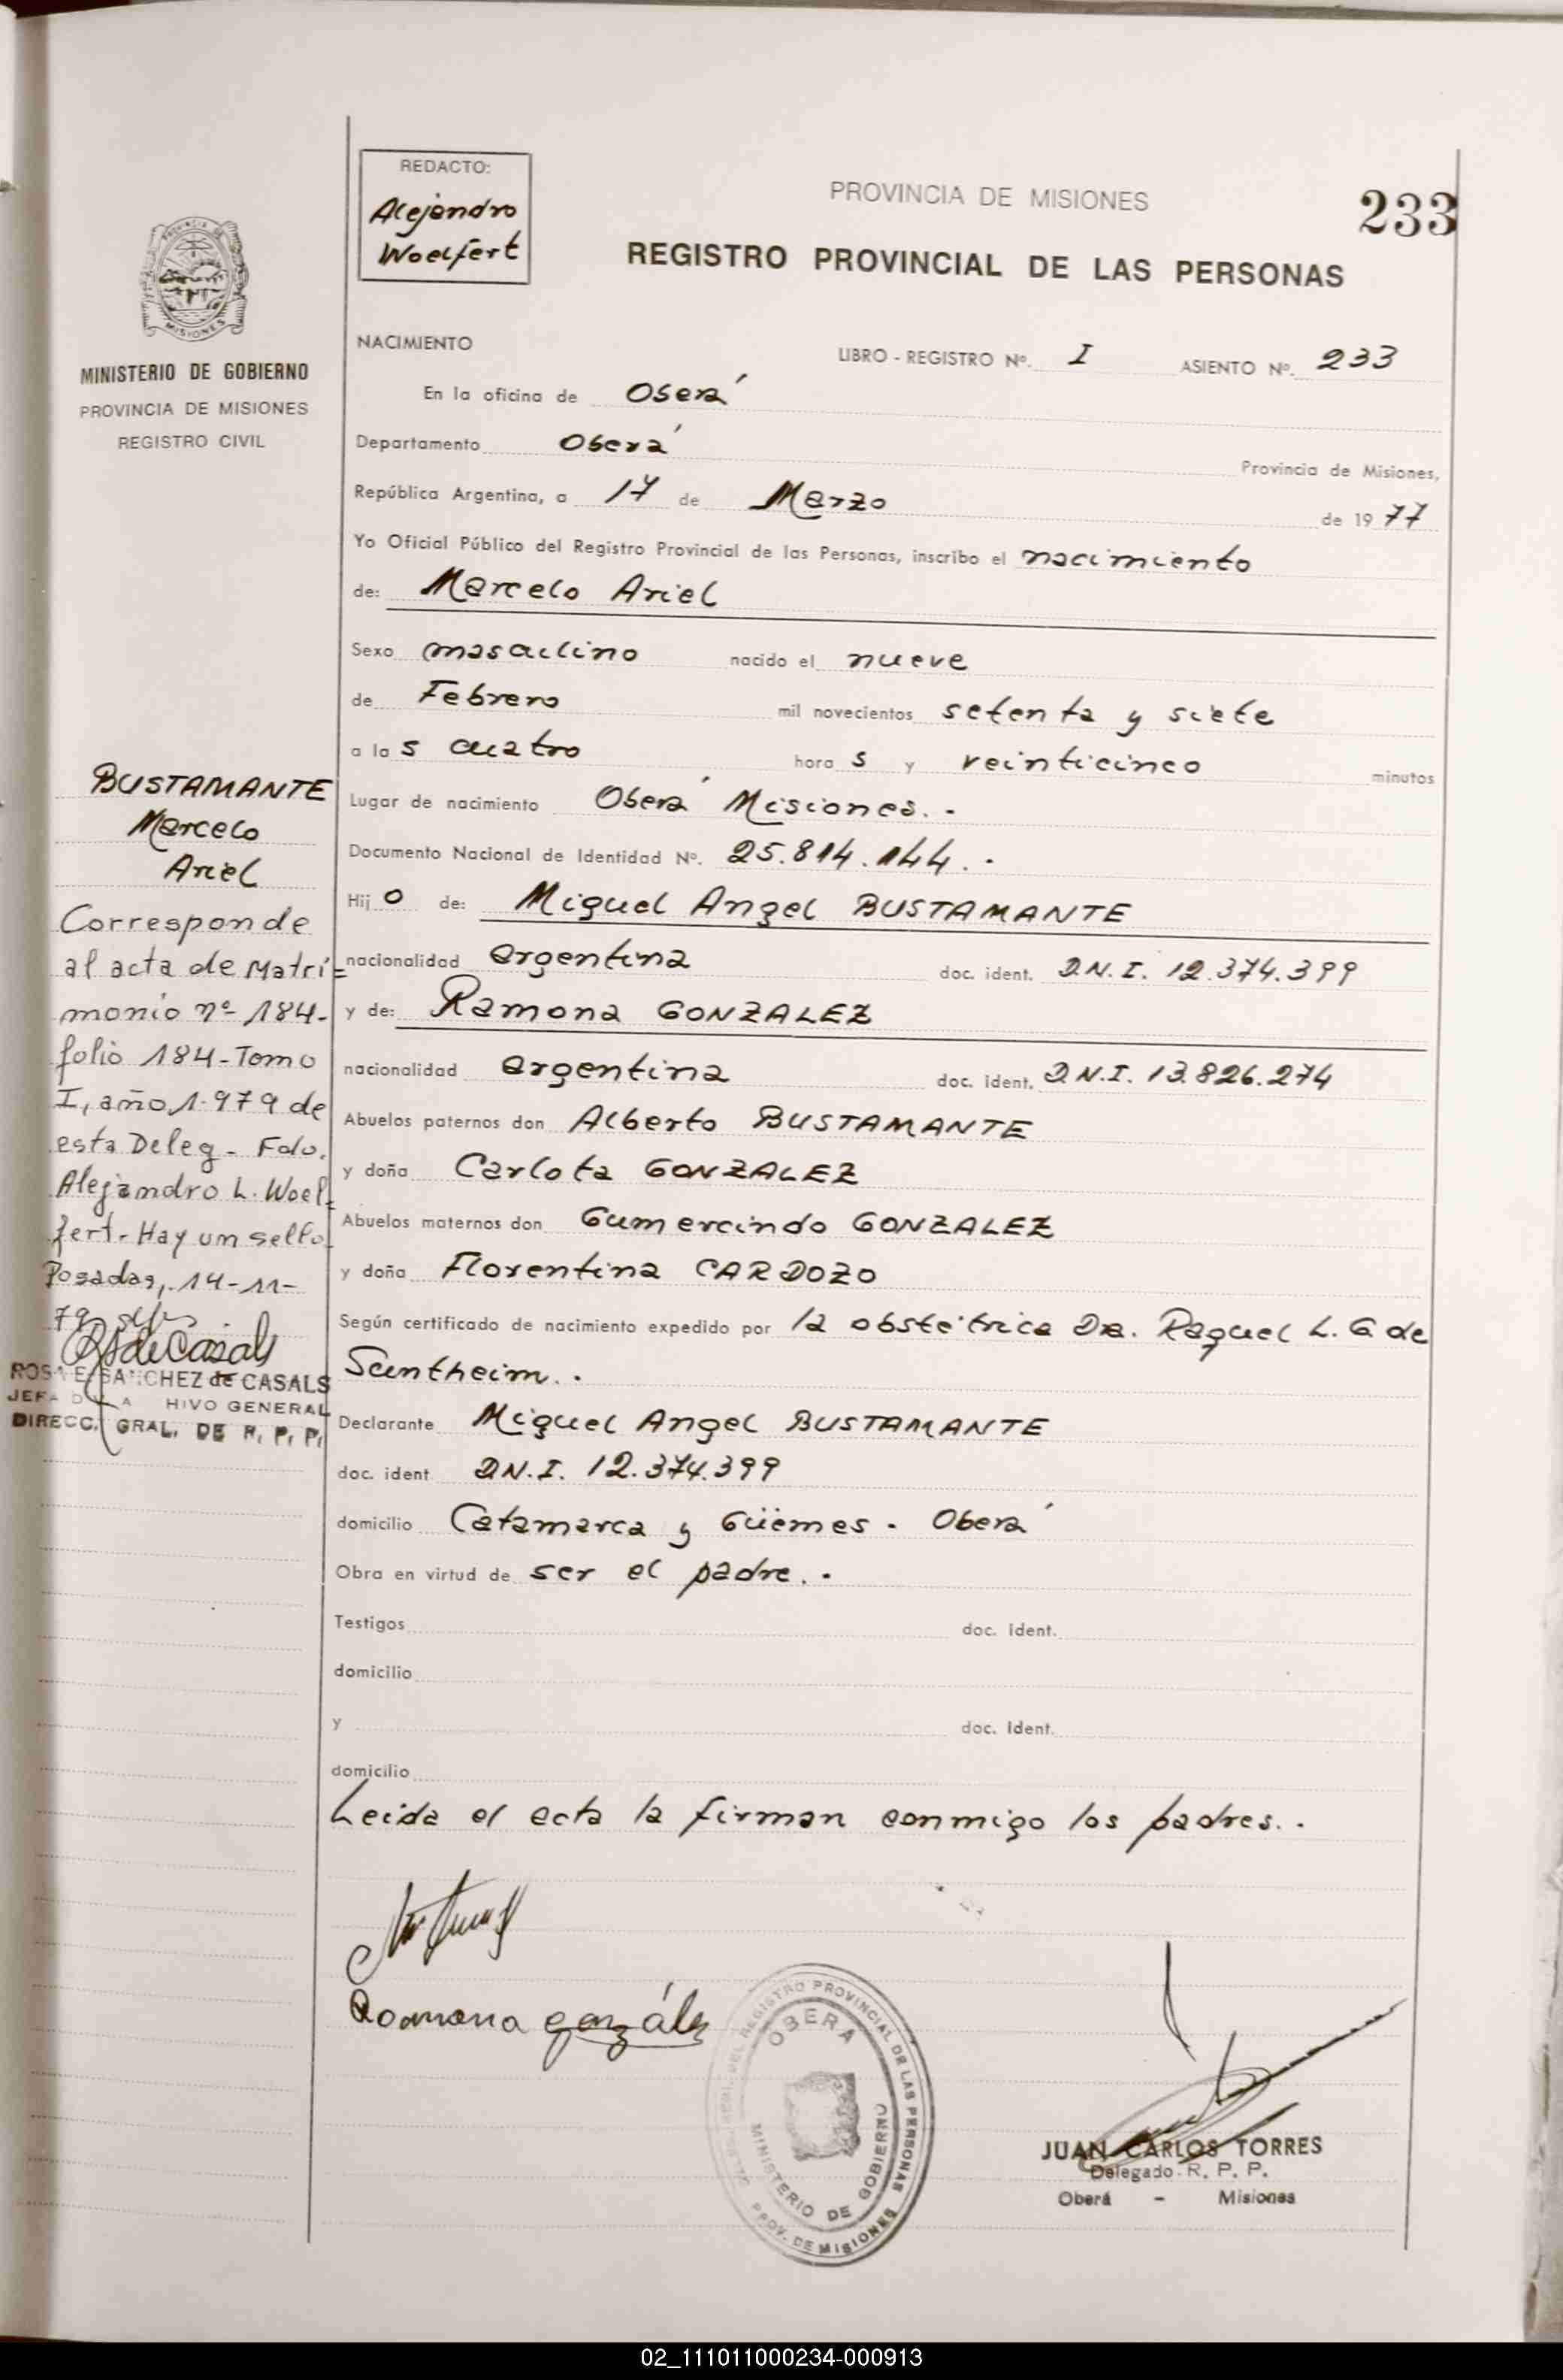 REDACTO:
Alejandro
Woelfert
PROVINCIA DE MISIONES
233
REGISTRO PROVINCIAL DE LAS PERSONAS
MISIONES
MINISTERIO DE GOBIERNO
PROVINCIA DE MISIONES
REGISTRO CIVIL
NACIMIENTO LIBRO - REGISTRO Nº. I ASIENTO Nº. 233
En la oficina de Oberá
Departamento Oberá Provincia de Misiones,
República Argentina, a 17 de Marzo de 1977
Yo Oficial Público del Registro Provincial de las Personas, inscribo el nacimiento
de: Marcelo Ariel
Sexo masculino nacido el nueve
de Febrero mil novecientos setenta y siete
a las cuatro horas y veinticinco minutos
Lugar de nacimiento Oberá Misiones.-
Documento Nacional de Identidad Nº. 25.814.144.-
Hijo de: Miguel Angel BUSTAMANTE
nacionalidad argentina doc. ident. D.N.I. 12.374.399
y de: Ramona GONZALEZ
nacionalidad argentina doc. ident. D.N.I. 13.826.274
Abuelos paternos don Alberto BUSTAMANTE
y doña Carlota GONZALEZ
Abuelos maternos don Gumercindo GONZALEZ
y doña Florentina CARDOZO
Según certificado de nacimiento expedido por la obstétrica Da. Raquel L. G. de
Suntheim.-
Declarante Miguel Angel BUSTAMANTE
doc. ident D.N.I. 12.374.399
domicilio Catamarca y Güemes - Oberá
Obra en virtud de ser el padre.-
Testigos doc. ident.
domicilio
y doc. ident.
domicilio
Leida el acta la firman conmigo los padres.-
BUSTAMANTE
Marcelo
Ariel
Corresponde
al acta de Matri=
monio nº 184-
folio 184-Tomo
I, año 1.979 de
esta Deleg- Fdo.
Alejandro L. Woel=
fert- Hay um sello
Posadas, 14-11-
79
RSdeCasals
ROSA E. SANCHEZ de CASALS
JEFA HIVO GENERAL
DIRECC. GRAL. DE R. P. P.
Ramona gonzález
REGISTRO PROVINCIAL DE LAS PERSONAS
OBERA
MINISTERIO DE GOBIERNO
PROV. DE MISIONES
JUAN CARLOS TORRES
Delegado R. P. P.
Oberá - Misiones
02_111011000234-000913